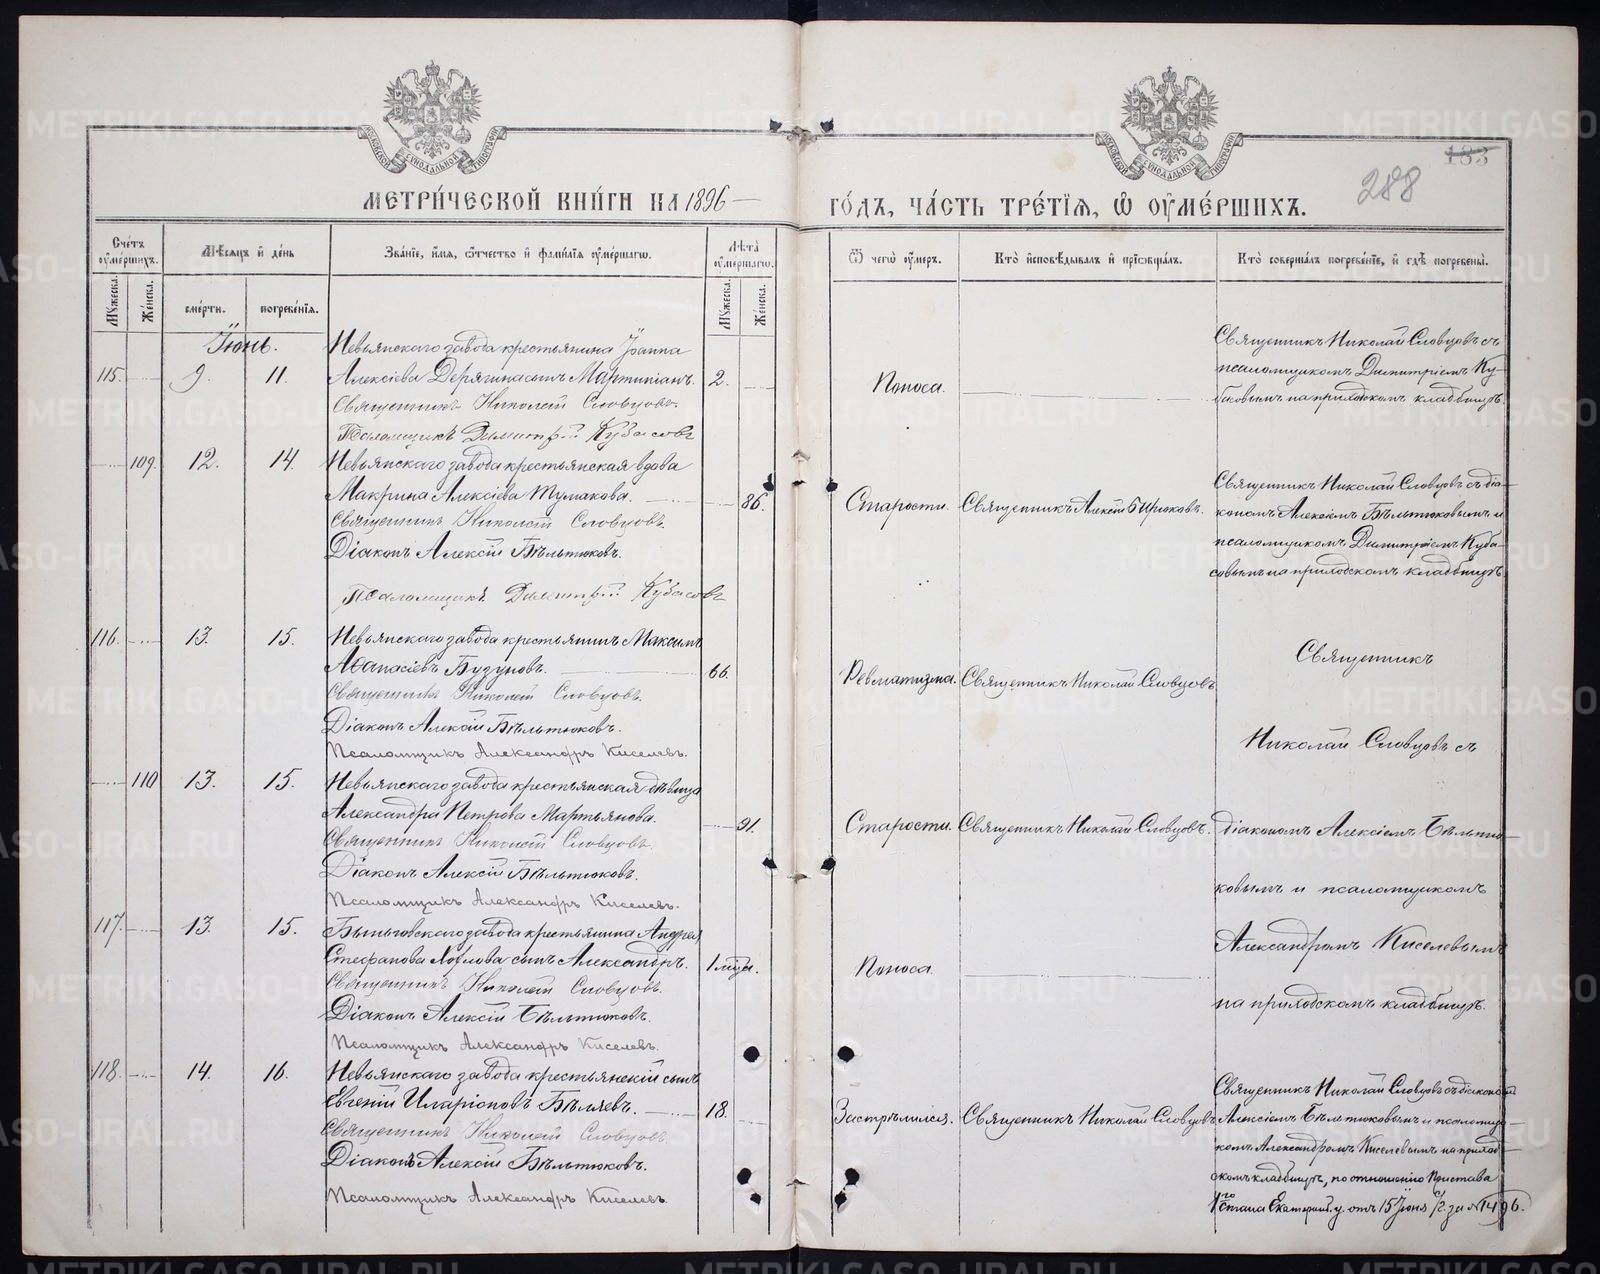 МЕТРИ́ЧЕСКОЙ КНИ́ГИ НА 1896
ГО́ДЪ, ЧА́СТЬ ТРЕ́ТІѦ, Ѡ ОУ҆МЕ́РШИХЪ.
183
288
Сче́тъ оу҆ме́ршихъ.
Мѣ́сяцъ и҆ де́нь
Зва́ніе, и҆́мя, ѻ҆́тчество и҆ фами́лія оу҆ме́ршагѡ.
Лѣта̀ оу҆ме́ршагѡ.
Ѿ чегѡ̀ оу҆́меръ.
Кто̀ и҆сповѣ́дывалъ и҆ прїѡбща́лъ.
Кто̀ соверша́лъ погребе́ніе, и҆ гдѣ̀ погребены̀.
Мꙋ́жеска.
Же́нска.
сме́рти.
погребе́нія.
Мꙋ́жеска.
Же́нска.
Іюнь.
115. 9. 11.
Невьянскаго завода крестьянина Іоанна
Алексіева Дерягина сынъ Мартиніанъ. 2.
Священникъ Николай Словцовъ.
Псаломщикъ Димитрій Кубасовъ
Поноса.
Священникъ Николай Словцовъ съ
псаломщикомъ Димитріемъ Ку-
басовымъ на приходскомъ кладбищѣ.
109. 12. 14.
Невьянскаго завода крестьянская вдова
Макрина Алексіева Тумакова. 86.
Священникъ Николай Словцовъ.
Діаконъ Алексій Бѣльтюковъ.
Псаломщикъ Димитрій Кубасовъ
Старости.
Священникъ Алексій Бирюковъ.
Священникъ Николай Словцовъ съ діа-
кономъ Алексіемъ Бѣльтюковымъ и
псаломщикомъ Димитріемъ Куба-
совымъ на приходскомъ кладбищѣ.
116. 13. 15.
Невьянскаго завода крестьянинъ Максимъ
Аѳанасіевъ Бузуновъ. 66.
Священникъ Николай Словцовъ.
Діаконъ Алексій Бѣльтюковъ.
Псаломщикъ Александръ Киселевъ.
Ревматизма.
Священникъ Николай Словцовъ
110 13. 15.
Невьянскаго завода крестьянская дѣвица
Александра Петрова Мартьянова. 91.
Священникъ Николай Словцовъ.
Діаконъ Алексій Бѣльтюковъ.
Псаломщикъ Александръ Киселевъ.
Старости.
Священникъ Николай Словцовъ.
117. 13. 15.
Быньговскаго завода крестьянина Андрея
Стефанова Хохлова сынъ Александръ. 1 мца.
Священникъ Николай Словцовъ.
Діаконъ Алексій Бѣльтюковъ.
Псаломщикъ Александръ Киселевъ.
Поноса.
Священникъ
Николай Словцовъ съ
діакономъ Алексіемъ Бѣльтю-
ковымъ и псаломщикомъ
Александромъ Киселевымъ
на приходскомъ кладбищѣ.
118. 14. 16.
Невьянскаго завода крестьянскій сынъ
Евгеній Иларіоновъ Бѣляевъ. 18.
Священникъ Николай Словцовъ.
Діаконъ Алексій Бѣльтюковъ.
Псаломщикъ Александръ Киселевъ.
Застрѣлился.
Священникъ Николай Словцовъ
Священникъ Николай Словцовъ съ діакономъ
Алексіемъ Бѣльтюковымъ и псаломщи-
комъ Александромъ Киселевымъ на приход-
скомъ кладбищѣ, по отношенію Пристава
1го стана Екатерин. у. отъ 15 Іюня с/г. за № 1496.
METRIKI.GASO-URAL.RU